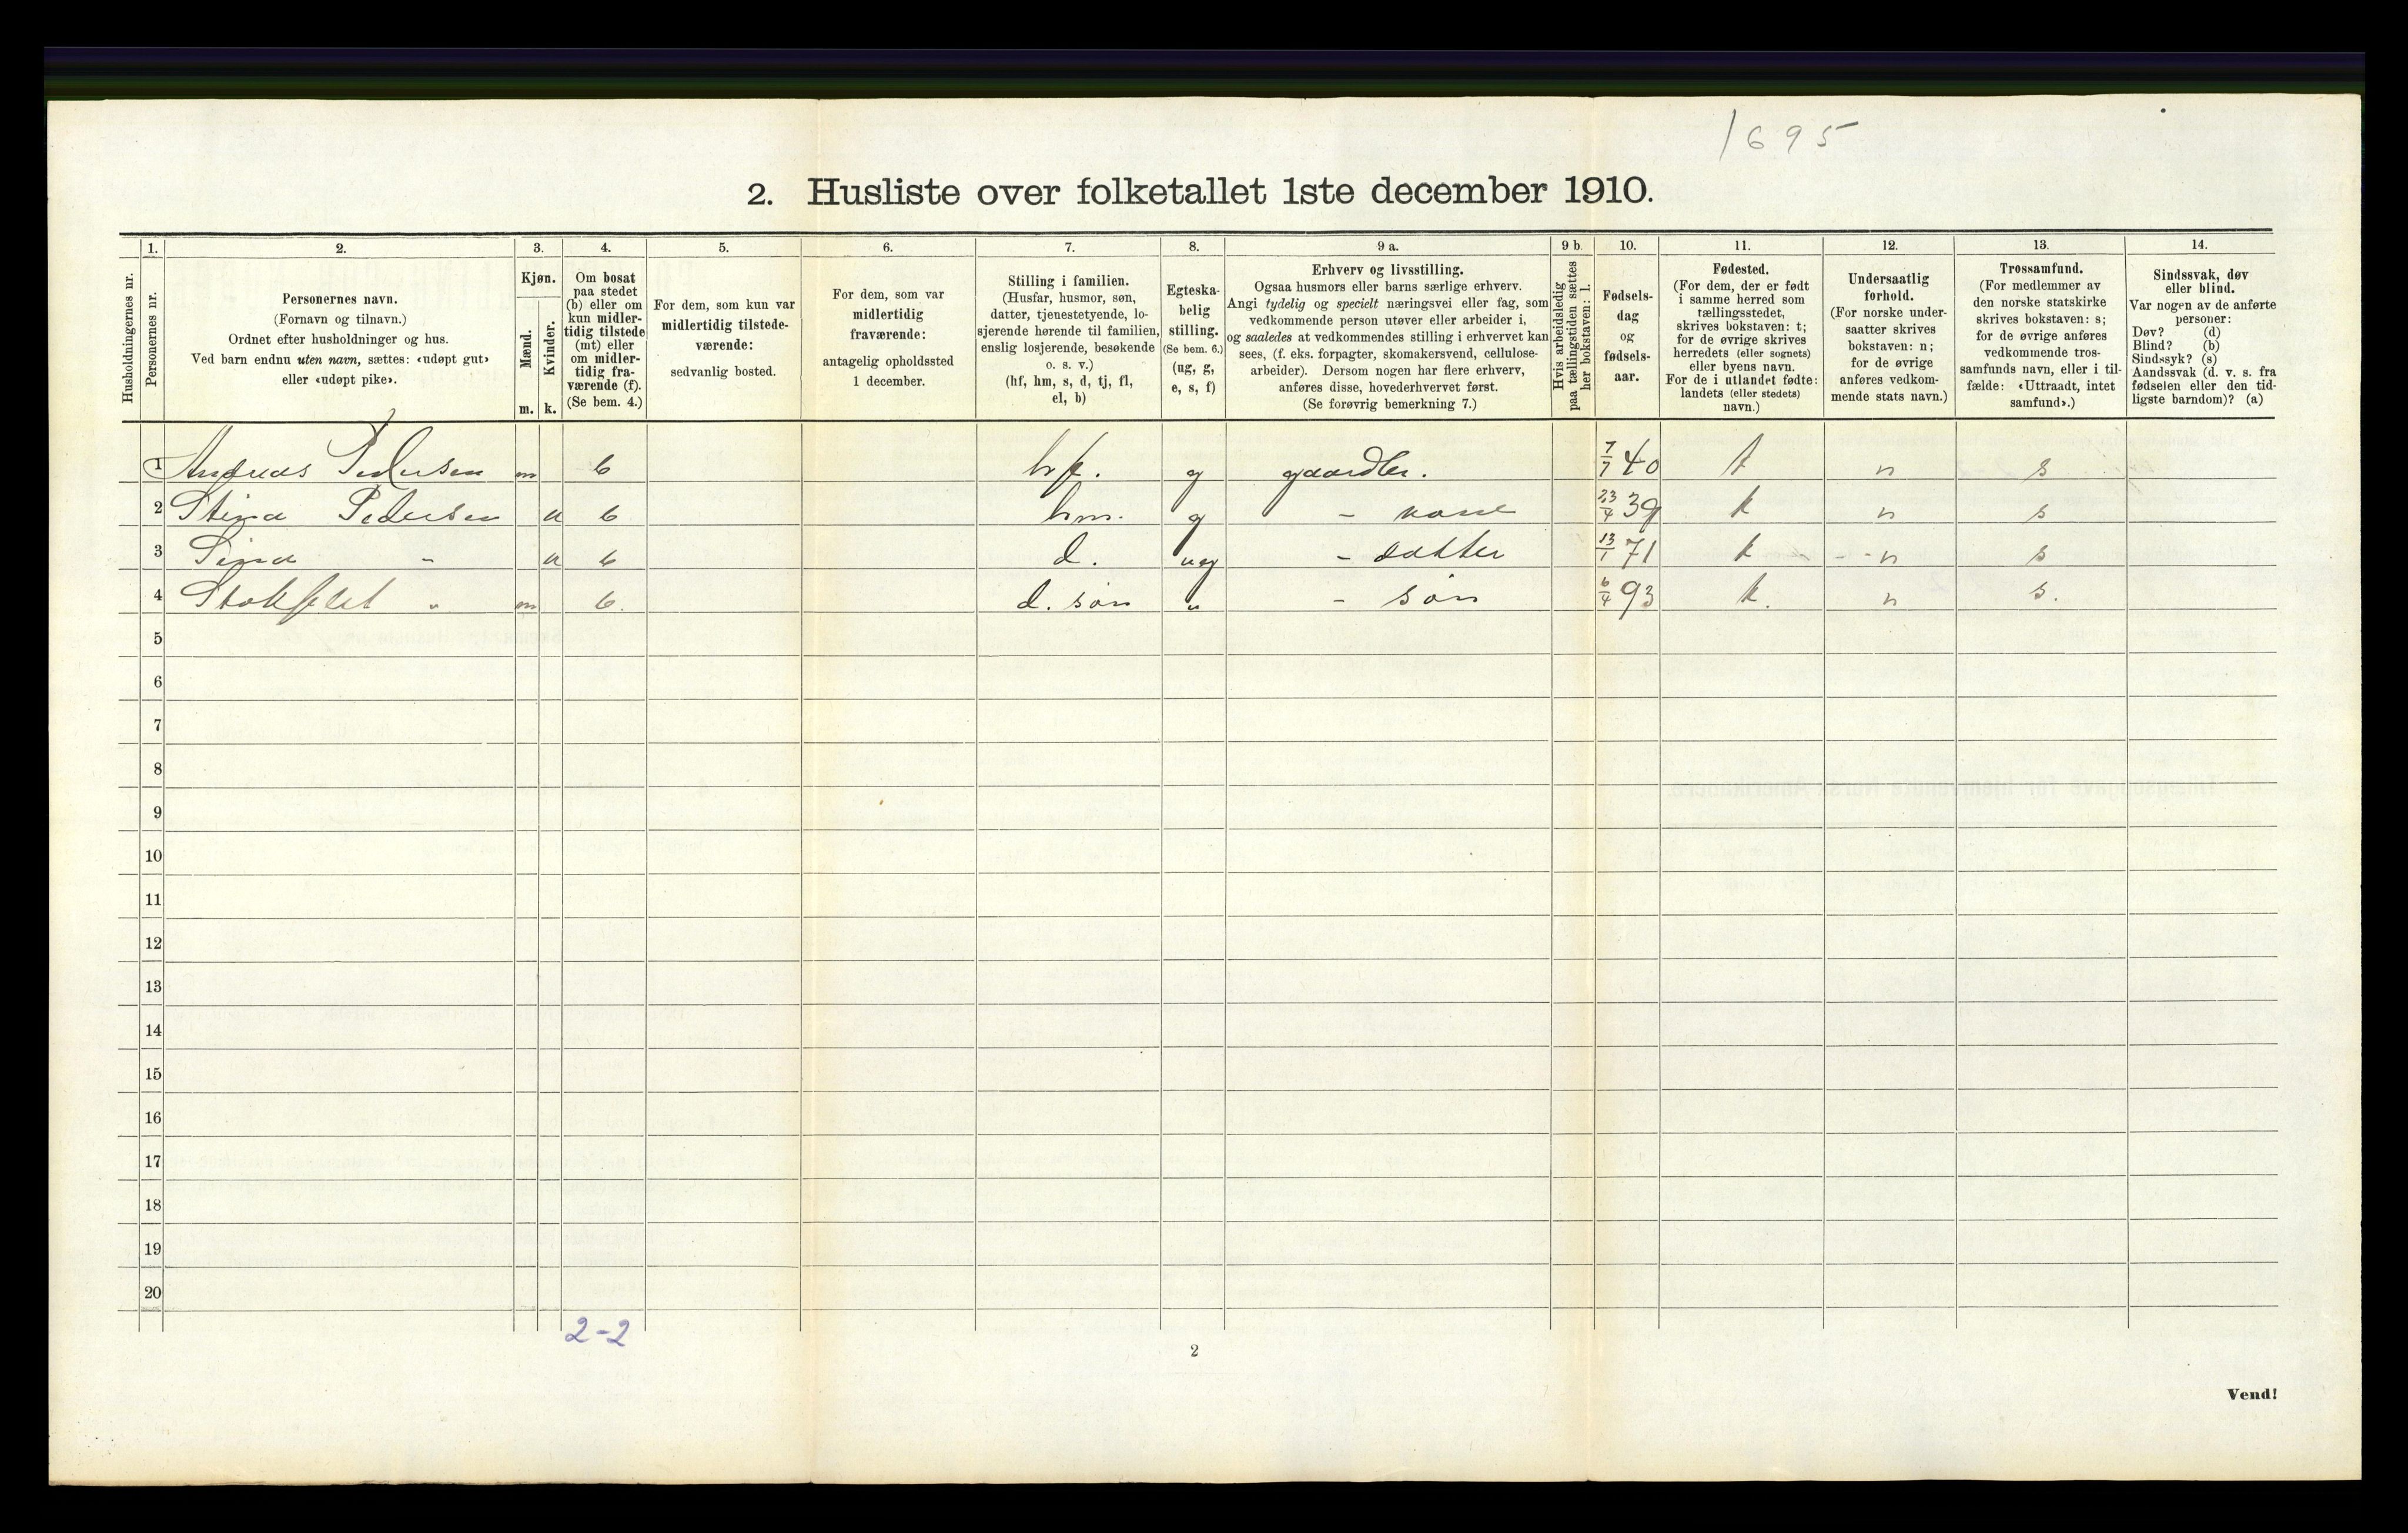 1695
2. Husliste over folketallet 1ste december 1910.
Husholdningernes nr.
1.
Personernes nr.
2.
Personernes navn.
(Fornavn og tilnavn.)
Ordnet efter husholdninger og hus.
Ved barn endnu uten navn, sættes: «udøpt gut»
eller «udøpt pike».
3.
Kjøn.
Mænd.
Kvinder.
m. k.
4.
Om bosat
paa stedet
(b) eller om
kun midler-
tidig tilstede
(mt) eller
om midler-
tidig fra-
værende (f).
(Se bem. 4.)
5.
For dem, som kun var
midlertidig tilstede-
værende:
sedvanlig bosted.
6.
For dem, som var
midlertidig
fraværende:
antagelig opholdssted
1 december.
7.
Stilling i familien.
(Husfar, husmor, søn,
datter, tjenestetyende, lo-
sjerende hørende til familien,
enslig losjerende, besøkende
o. s. v.)
(hf, hm, s, d, tj, fl,
el, b)
8.
Egteska-
belig
stilling.
(Se bem. 6.)
(ug, g,
e, s, f)
9 a.
Erhverv og livsstilling.
Ogsaa husmors eller barns særlige erhverv.
Angi tydelig og specielt næringsvei eller fag, som
vedkommende person utøver eller arbeider i,
og saaledes at vedkommendes stilling i erhvervet kan
sees, (f. eks. forpagter, skomakersvend, cellulose-
arbeider). Dersom nogen har flere erhverv,
anføres disse, hovederhvervet først.
(Se forøvrig bemerkning 7.)
9 b.
Hvis arbeidsledig
paa tællingstiden sættes
her bokstaven: l.
10.
Fødsels-
dag
og
fødsels-
aar.
11.
Fødested.
(For dem, der er født
i samme herred som
tællingsstedet,
skrives bokstaven: t;
for de øvrige skrives
herredets (eller sognets)
eller byens navn.
For de i utlandet fødte:
landets (eller stedets)
navn.)
12.
Undersaatlig
forhold.
(For norske under-
saatter skrives
bokstaven: n;
for de øvrige
anføres vedkom-
mende stats navn.)
13.
Trossamfund.
(For medlemmer av
den norske statskirke
skrives bokstaven: s;
for de øvrige anføres
vedkommende tros-
samfunds navn, eller i til-
fælde: «Uttraadt, intet
samfund».)
14.
Sindssvak, døv
eller blind.
Var nogen av de anførte
personer:
Døv? (d)
Blind? (b)
Sindssyk? (s)
Aandssvak (d. v. s. fra
fødselen eller den tid-
ligste barndom)? (a)
1 Andreas Pedersen m b hf. g gaardbr. 7/7 40 t n s
2 Stina Pedersen k b hm. g - kone 23/4 39 t n s
3 Sina " k b d. ug - datter 13/1 71 t n s
4 " m b. d. søn " - søn 6/4 93 t. n s.
5
6
7
8
9
10
11
12
13
14
15
16
17
18
19
20
2-2
2
Vend!